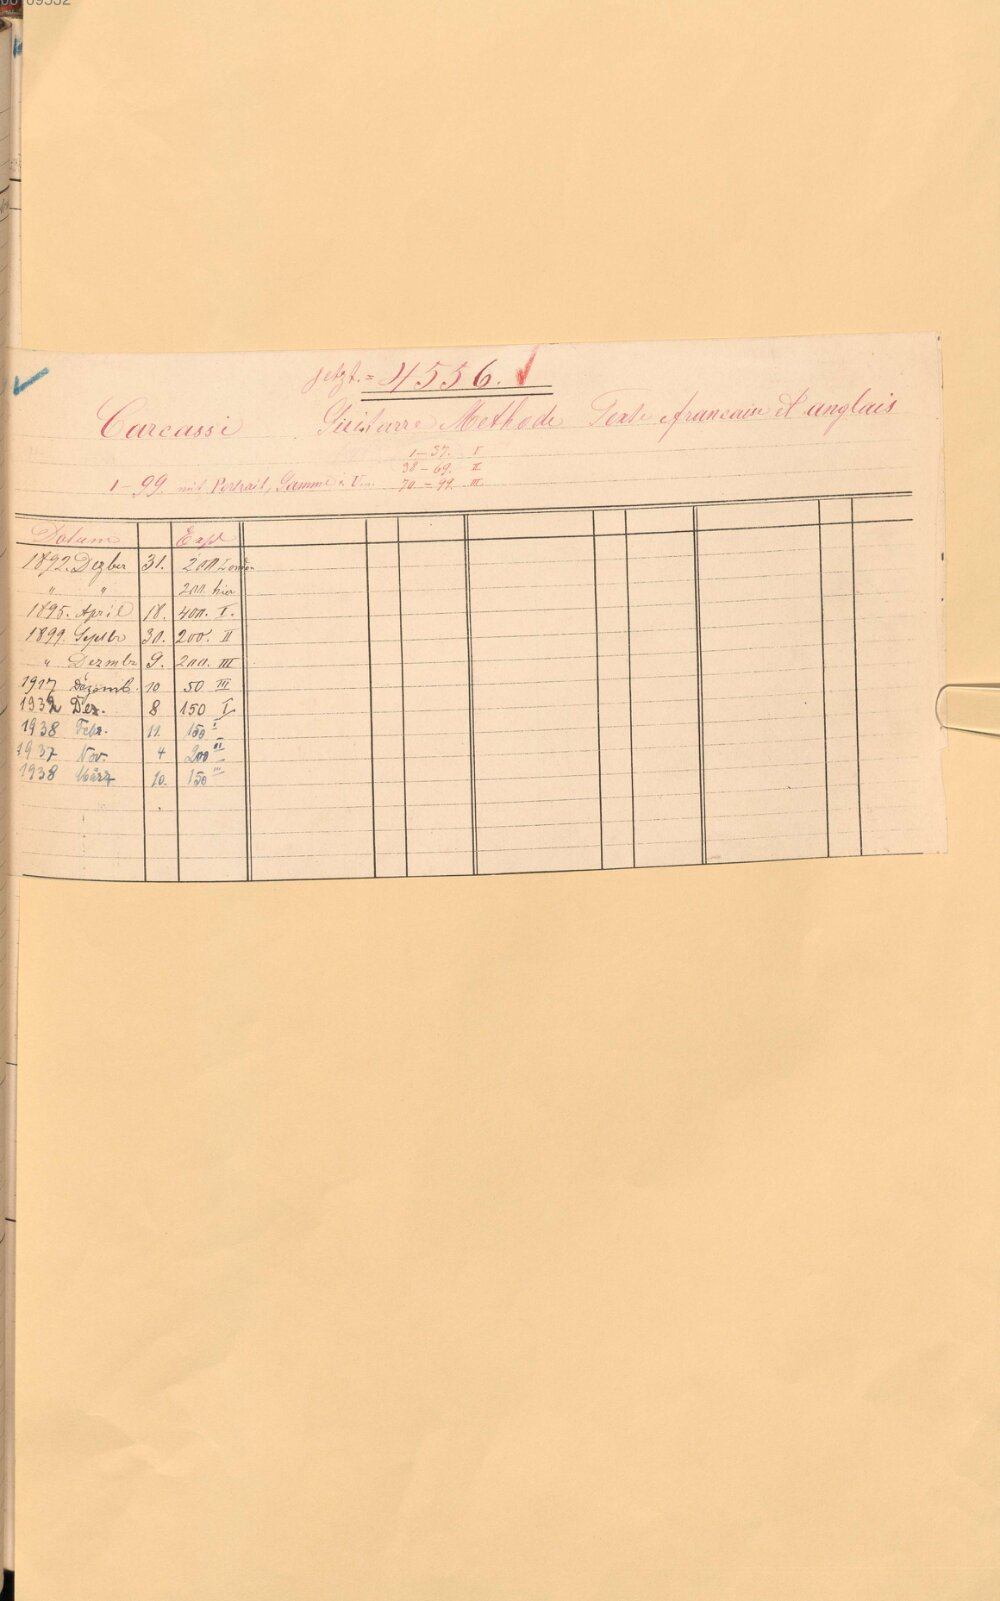 jetzt = 4536.
Carcassi Guitarre Methode Texte francais et anglais
1–37. I
38–69. II
1–99. mit Portrait, Gamme 70–99. III
Datum Expl
1892. Dezber 31. 200 London
" " 200. hier
1895. April 18. 400. I.
1899. Septbr 30. 200. II
" Dezmbr 9. 200. III
1917 Dezemb. 10 50 III
1932 Dez. 8 150 I
1938 Febr. 11. 150 I
1937 Nov. 4 200 II
1938 März 10. 150 III